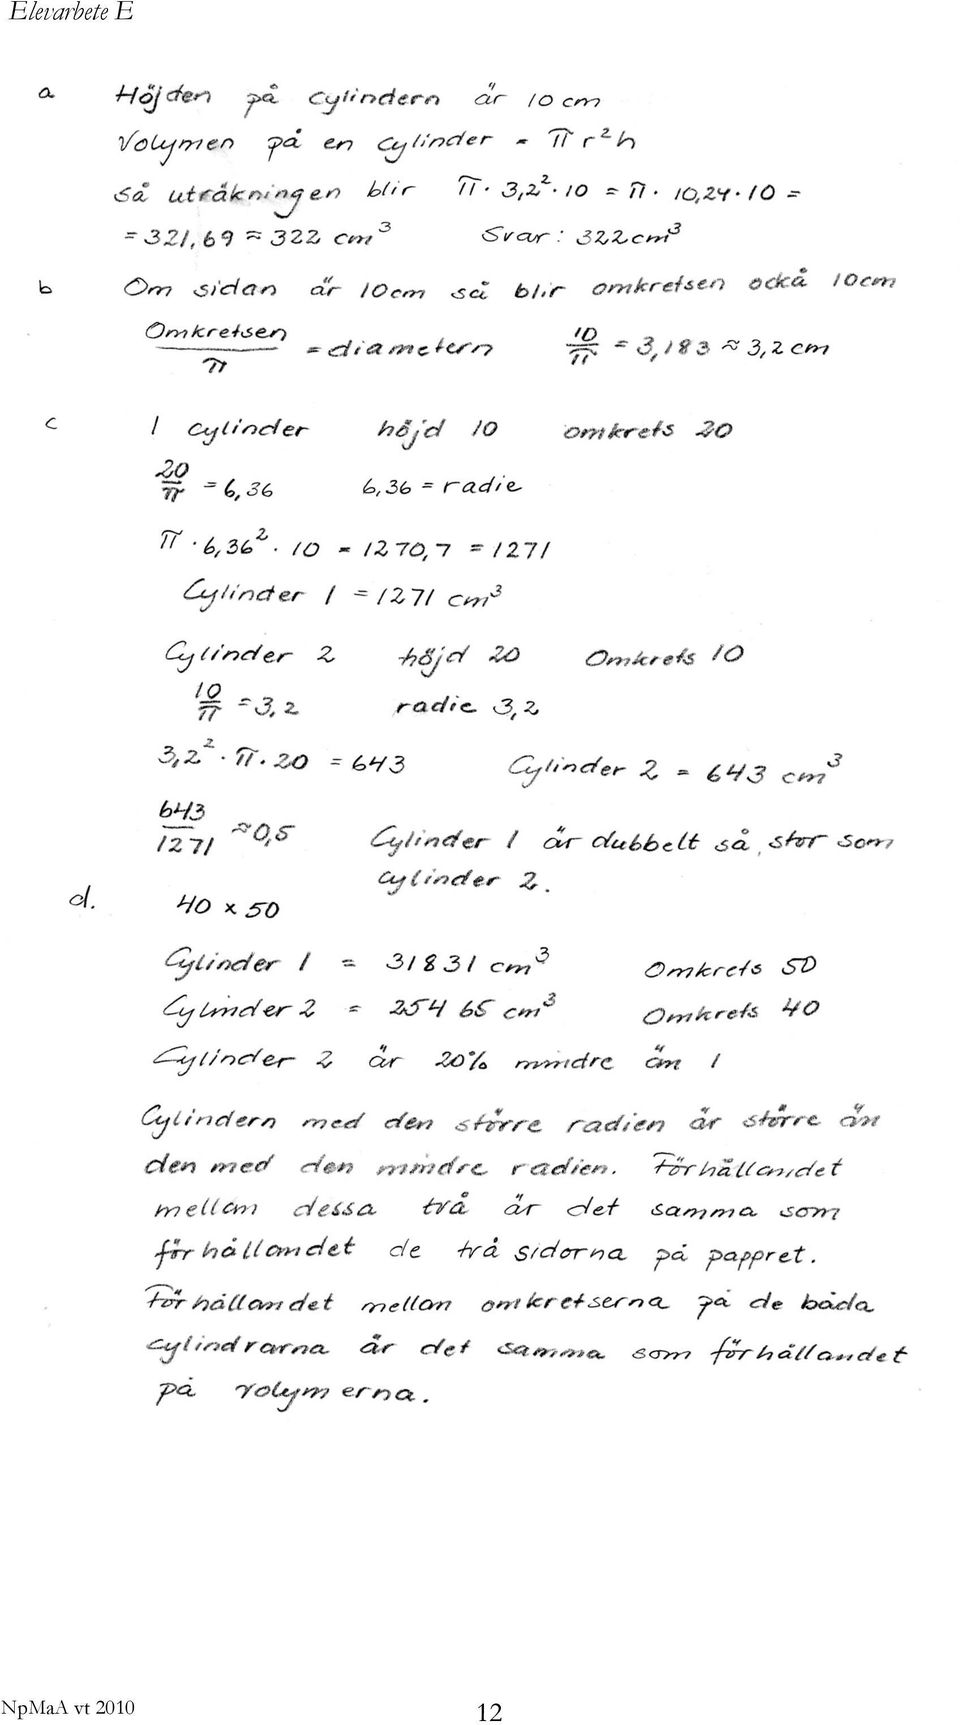 Elevarbete E
a Höjden på cylindern är 10 cm
Volymen på en cylinder = π r²h
så uträkningen blir π · 3,2² · 10 = π · 10,24 · 10 =
= 321,69 ≈ 322 cm³ Svar: 322cm³
b Om sidan är 10cm så blir omkretsen ockå 10cm
Omkretsen/π = diametern 10/π = 3,183 ≈ 3,2 cm
c 1 cylinder höjd 10 omkrets 20
20/π = 6,36 6,36 = radie
π · 6,36² · 10 = 1270,7 = 1271
Cylinder 1 = 1271 cm³
Cylinder 2 höjd 20 Omkrets 10
10/π = 3,2 radie 3,2
3,2² · π · 20 = 643 Cylinder 2 = 643 cm³
643/1271 ≈ 0,5 Cylinder 1 är dubbelt så stor som
cylinder 2.
d. 40 x 50
Cylinder 1 = 31831 cm³ Omkrets 50
Cylinder 2 = 25465 cm³ Omkrets 40
Cylinder 2 är 20% mindre än 1
Cylindern med den större radien är större än
den med den mindre radien. Förhållandet
mellan dessa två är det samma som
förhållandet de två sidorna på pappret.
Förhållandet mellan omkretserna på de båda
cylindrarna är det samma som förhållandet
på volymerna.
NpMaA vt 2010 12